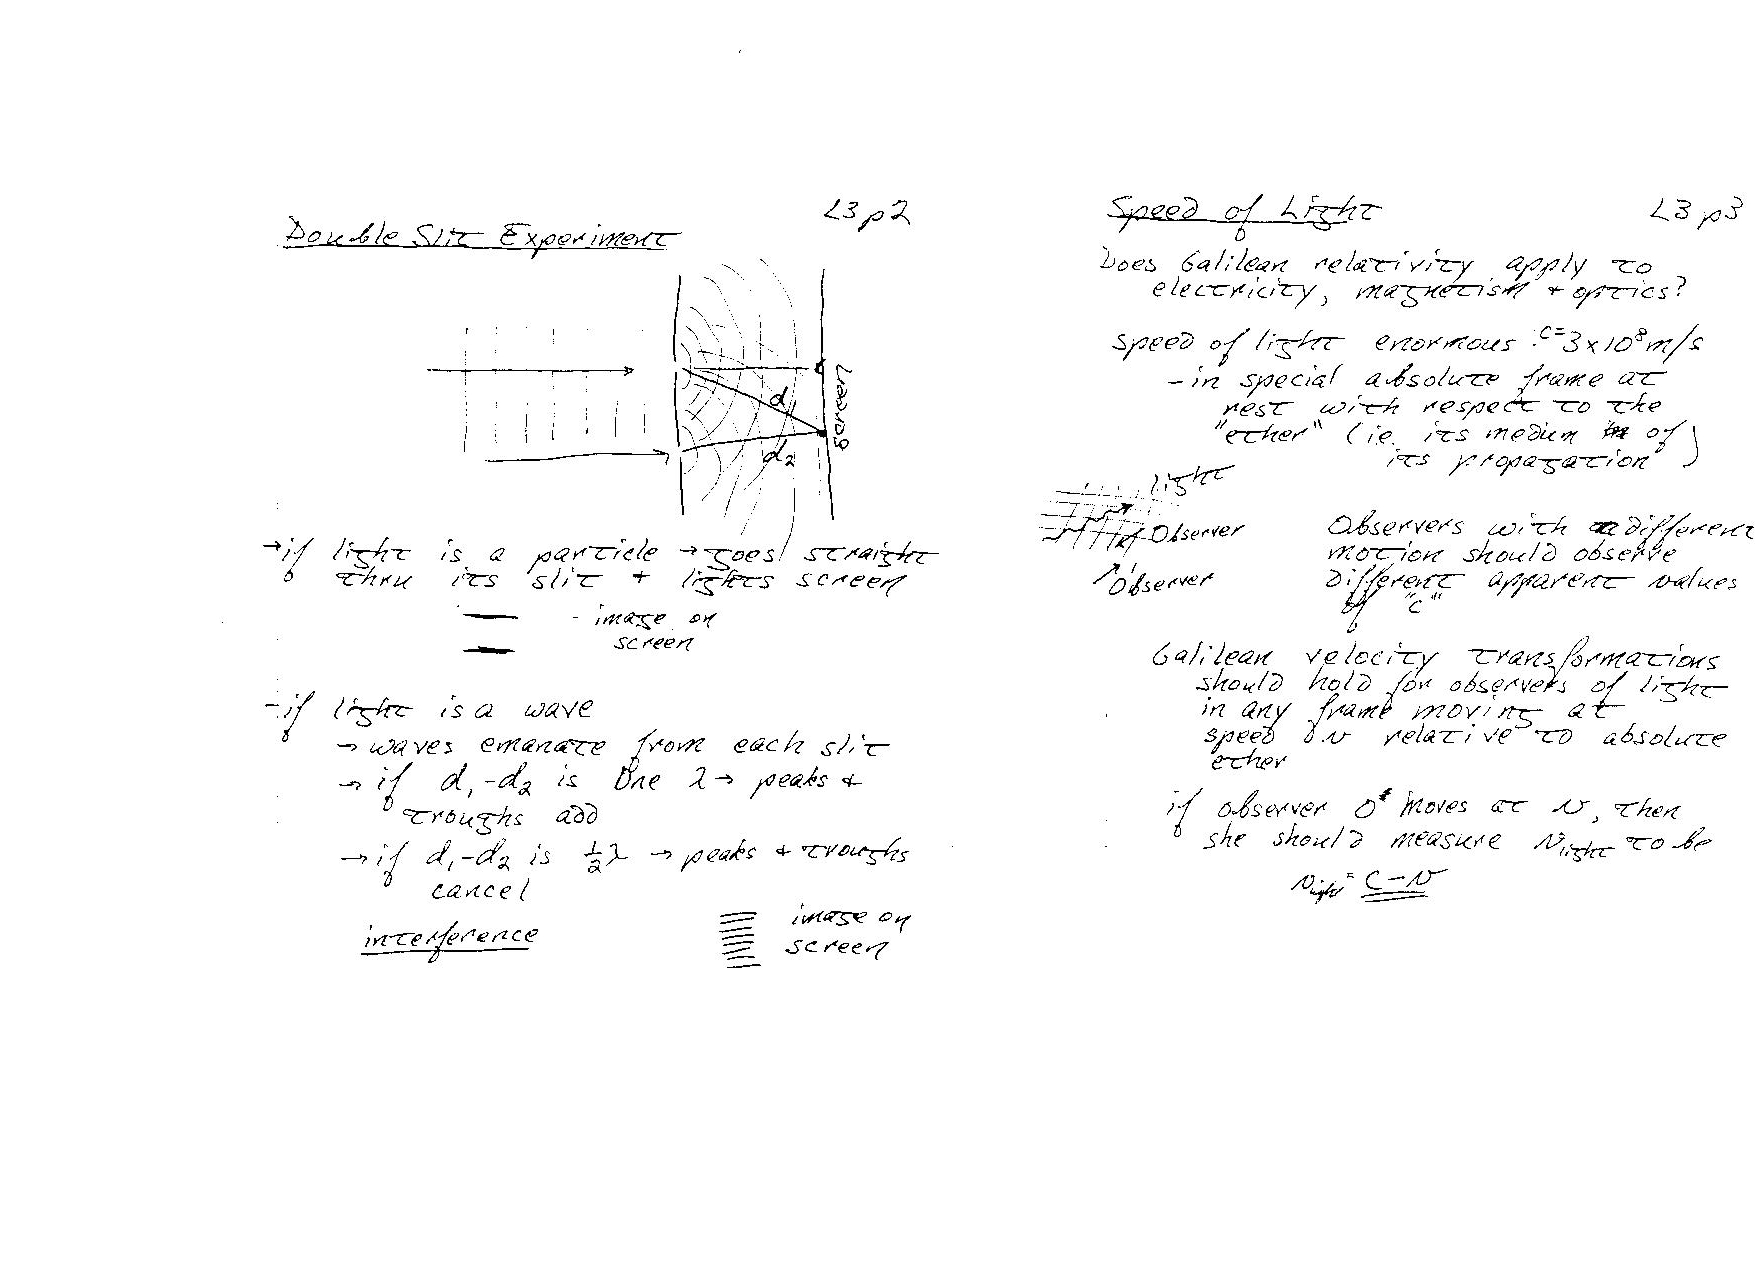 L3 p2
Double Slit Experiment
d
d2
screen
→ if light is a particle → goes straight
thru its slit + lights screen
- image on
screen
- if light is a wave
→ waves emanate from each slit
→ if d1-d2 is One λ → peaks +
troughs add
→ if d1-d2 is 1/2 λ → peaks + troughs
cancel
interference
image on
screen
Speed of Light L3 p3
Does Galilean relativity apply to
electricity, magnetism + optics?
speed of light enormous : c=3x10^8 m/s
- in special absolute frame at
rest with respect to the
"ether" (ie. its medium of
its propagation)
light
Observer
Observer
Observers with different
motion should observe
different apparent values
of "c"
Galilean velocity transformations
should hold for observers of light
in any frame moving at
speed v relative to absolute
ether
if observer O' moves at v, then
she should measure Vlight to be
Vlight = C-v